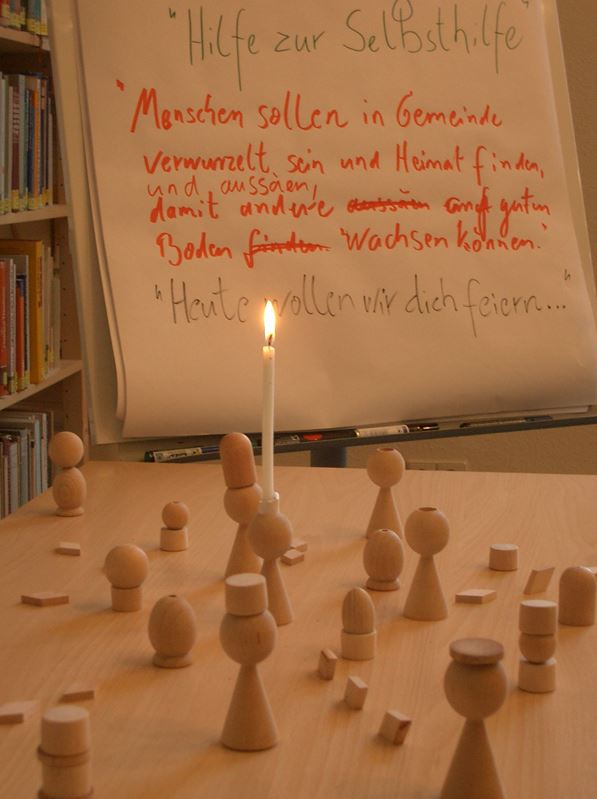 "Hilfe zur Selbsthilfe"
"Menschen sollen in Gemeinde
verwurzelt sein und Heimat finden,
und aussäen,
damit andere aussäen auf guten
Boden finden. wachsen können."
"Heute wollen wir dich feiern..."